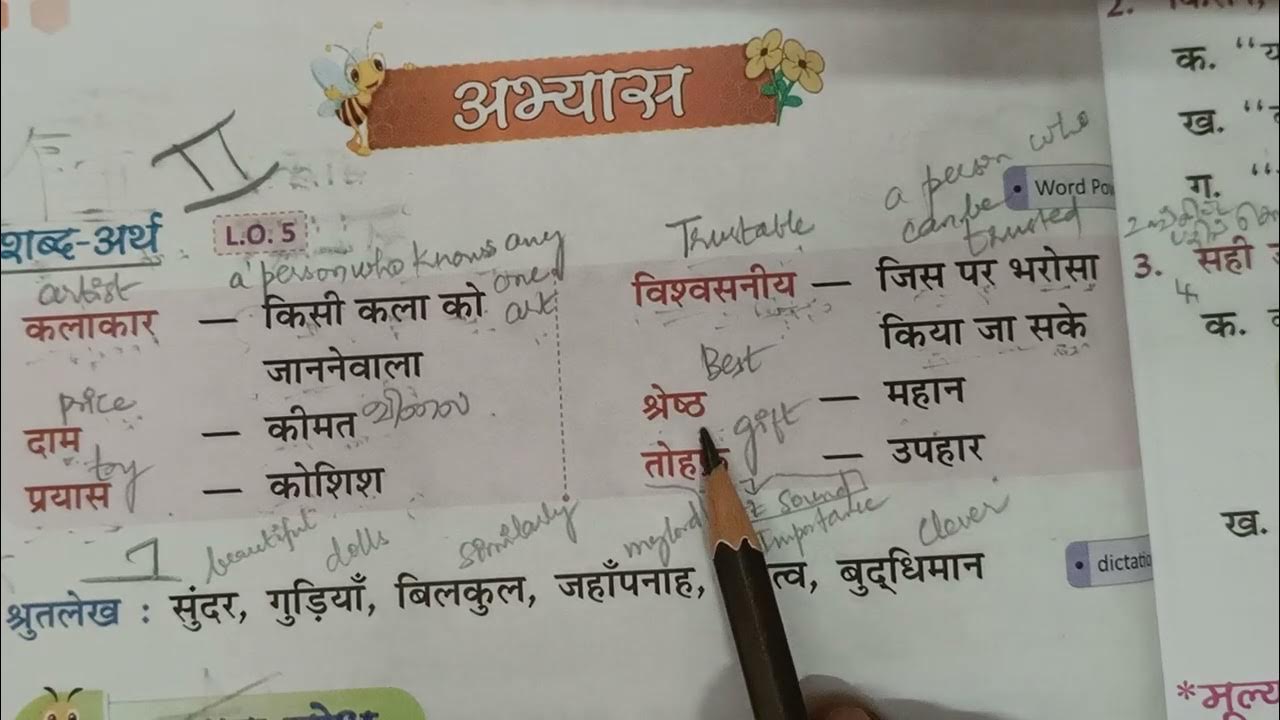 अभ्यास
II
शब्द-अर्थ L.O. 5
Word Po
artist
a person who knows any one art
कलाकार — किसी कला को
जाननेवाला
price
दाम — कीमत
toy
प्रयास — कोशिश
Trustable
a person who can be trusted
विश्वसनीय — जिस पर भरोसा
किया जा सके
Best
श्रेष्ठ — महान
gift
— उपहार
z sound
1 beautiful dolls similarly mylord Importance clever
श्रुतलेख : सुंदर, गुड़ियाँ, बिलकुल, जहाँपनाह, त्व, बुद्धिमान
dictatio
2.
क. “य
ख. “
ग. “
3. सही
4
क.
ख.
*मूल्य